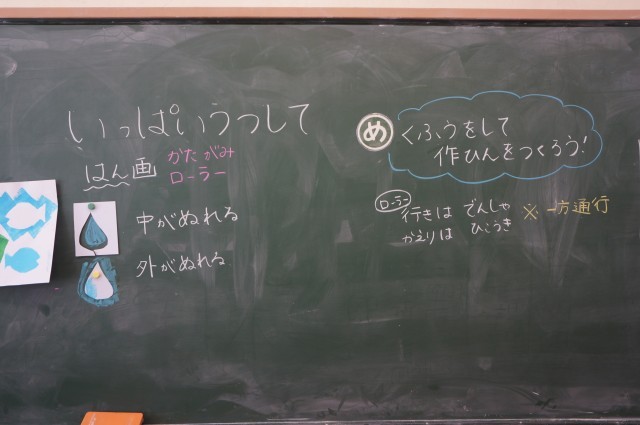 いっぱいうつして
はん画
かたがみ
ローラー
中がぬれる
外がぬれる
め
くふうをして
作ひんをつくろう!
ローラー
行きは でんしゃ
かえりは ひこうき
※一方通行